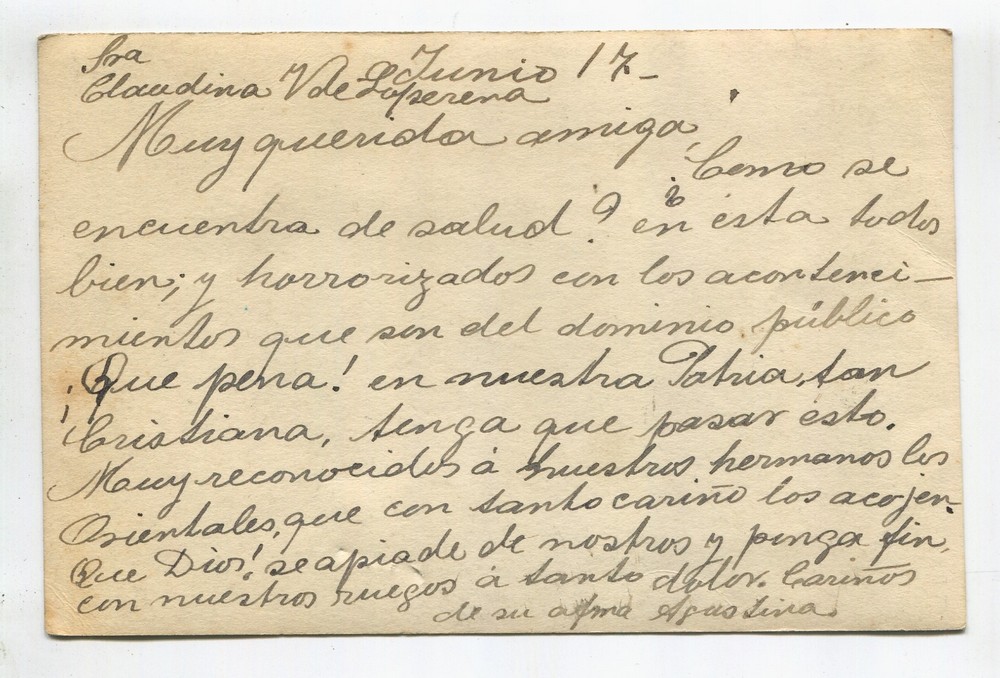 Sra Junio 17-
Claudina V de Loperena
Muy querida amiga,
Como se
encuentra de salud? ¿ en ésta todos
bien; y horrorizados con los acontenci-
mientos que son del dominio público
¡Que pena! en nuestra Patria, tan
Cristiana, tenga que pasar ésto.
Muy reconocidos á nuestros hermanos los
Orientales, que con tanto cariño los acojen.
Que Dios! se apiade de nostros y ponga fin,
con nuestros ruegos á tanto dolor. Cariños
de su afma Agustina.